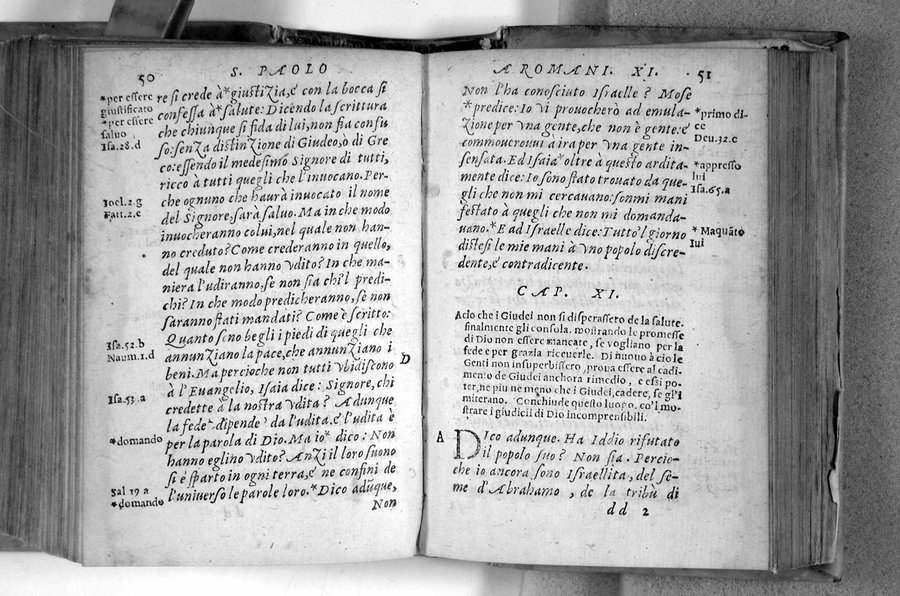 50
S. PAOLO
*per essere
giustificato
*per essere
saluo
Isa.28.d
Ioel.2.g
Fatt.2.c
Isa.52.b
Naum.1.d
Isa.53.a
*domando
Sal 19 a
*domando
re si crede à*giustizia,e con la bocca si
confessa à*salute: Dicendo la scrittura
che chiunque si fida di lui,non fia confu
so:senza distinzione di Giudeo,ò di Gre
co:essendo il medesimo Signore di tutti,
ricco à tutti quegli che l'inuocano. Per-
che ognuno che haurà inuocato il nome
del Signore,sarà saluo. Ma in che modo
inuocheranno colui,nel quale non han-
no creduto? Come crederanno in quello,
del quale non hanno vdito? In che ma-
niera l'udiranno,se non sia chi'l predi-
chi? In che modo predicheranno, se non
saranno stati mandati? Come è scritto:
Quanto sono begli i piedi di quegli che
annunziano la pace,che annunziano i
beni. Ma percioche non tutti vbidiscono
D
à l'Euangelio, Isaia dice: Signore, chi
credette à la nostra vdita? Adunque
la fede dipende da l'udita, e l'udita è
per la parola di Dio. Ma io* dico: Non
hanno eglino vdito? Anzi il loro suono
si è sparto in ogni terra,e ne confini de
l'uniuerso le parole loro.*Dico adūque,
Non
A ROMANI. XI.
51
Non l'ha conosciuto Israelle? Mose
*predice: Io vi prouocherò ad emula-
zione per vna gente,che non è gente: e
commouerouui à ira per vna gente in-
sensata. Ed Isaia*oltre à questo ardita-
mente dice: Io sono stato trouato da que-
gli che non mi cercauano: sonmi mani
festato à quegli che non mi domanda-
uano.*E ad Israelle dice: Tutto'l giorno
distesi le mie mani à vno popolo discre-
dente,e contradicente.
*primo di-
ce
Deu.32.c
*appresso
lui
Isa.65.a
*Maquāto
CAP. XI.
Acio che i Giudei non si disperasseto de la salute.
finalmente gli consola. mostrando le promesse
di Dio non essere mancate, se vogliano per la
fede e per grazia riceuerle. Di nuouo à cio le
Genti non insuperbissero, proua essere al cadi-
mento de Giudei anchora rimedio, e essi po-
ter,ne piu ne meno che i Giudei,cadere, se gl'i
miterano. Conchiude questo luogo, co'l mo-
strare i giudicii di Dio incomprensibili.
A
DIco adunque. Ha Iddio rifiutato
il popolo suo? Non sia. Percio-
che io ancora sono Israellita, del se-
me d'Abrahamo, de la tribù di
dd 2